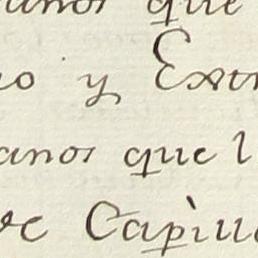 anos que
o y Extr
anos que l
ve Capitu